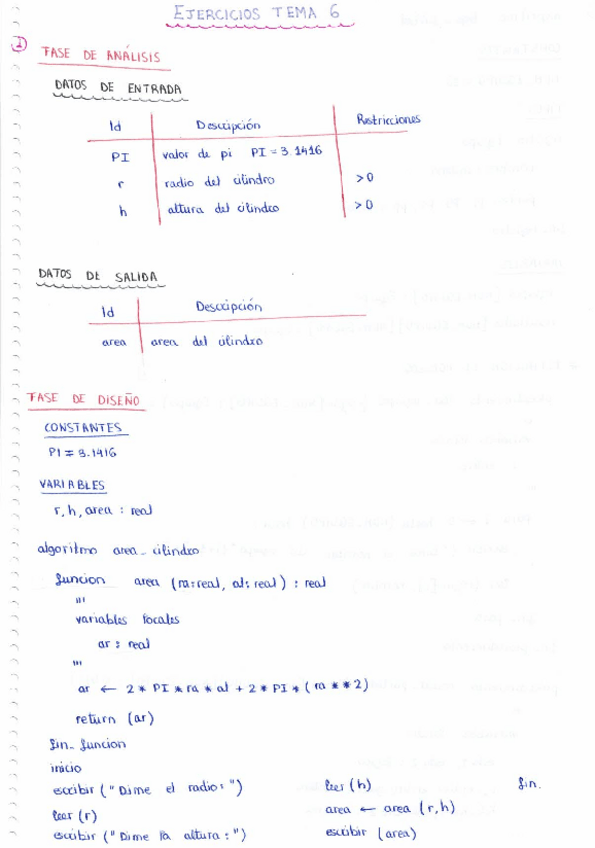 EJERCICIOS TEMA 6
1
FASE DE ANÁLISIS
DATOS DE ENTRADA
Id Descripción Restricciones
PI valor de pi PI = 3.1416
r radio del cilindro >0
h altura del cilindro >0
DATOS DE SALIDA
Id Descripción
area area del cilindro
FASE DE DISEÑO
CONSTANTES
PI = 3.1416
VARIABLES
r, h, area : real
algoritmo area_cilindro
funcion area (ra:real, al:real) : real
"'
variables locales
ar : real
"'
ar ← 2 * PI * ra * al + 2 * PI * (ra ** 2)
return (ar)
fin_funcion
inicio
escribir ("Dime el radio:")
leer (r)
escribir ("Dime la altura:")
leer (h)
area ← area (r,h)
escribir (area)
fin.